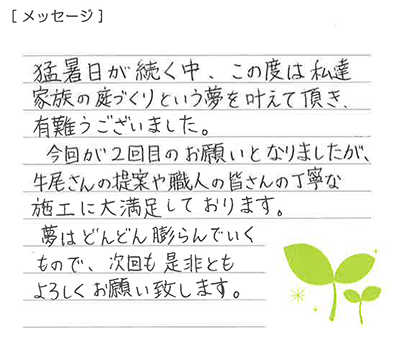 [メッセージ]
猛暑日が続く中、この度は私達
家族の庭づくりという夢を叶えて頂き、
有難うございました。
今回が2回目のお願いとなりましたが、
牛尾さんの提案や職人の皆さんの丁寧な
施工に大満足しております。
夢はどんどん膨らんでいく
もので、次回も是非とも
よろしくお願い致します。